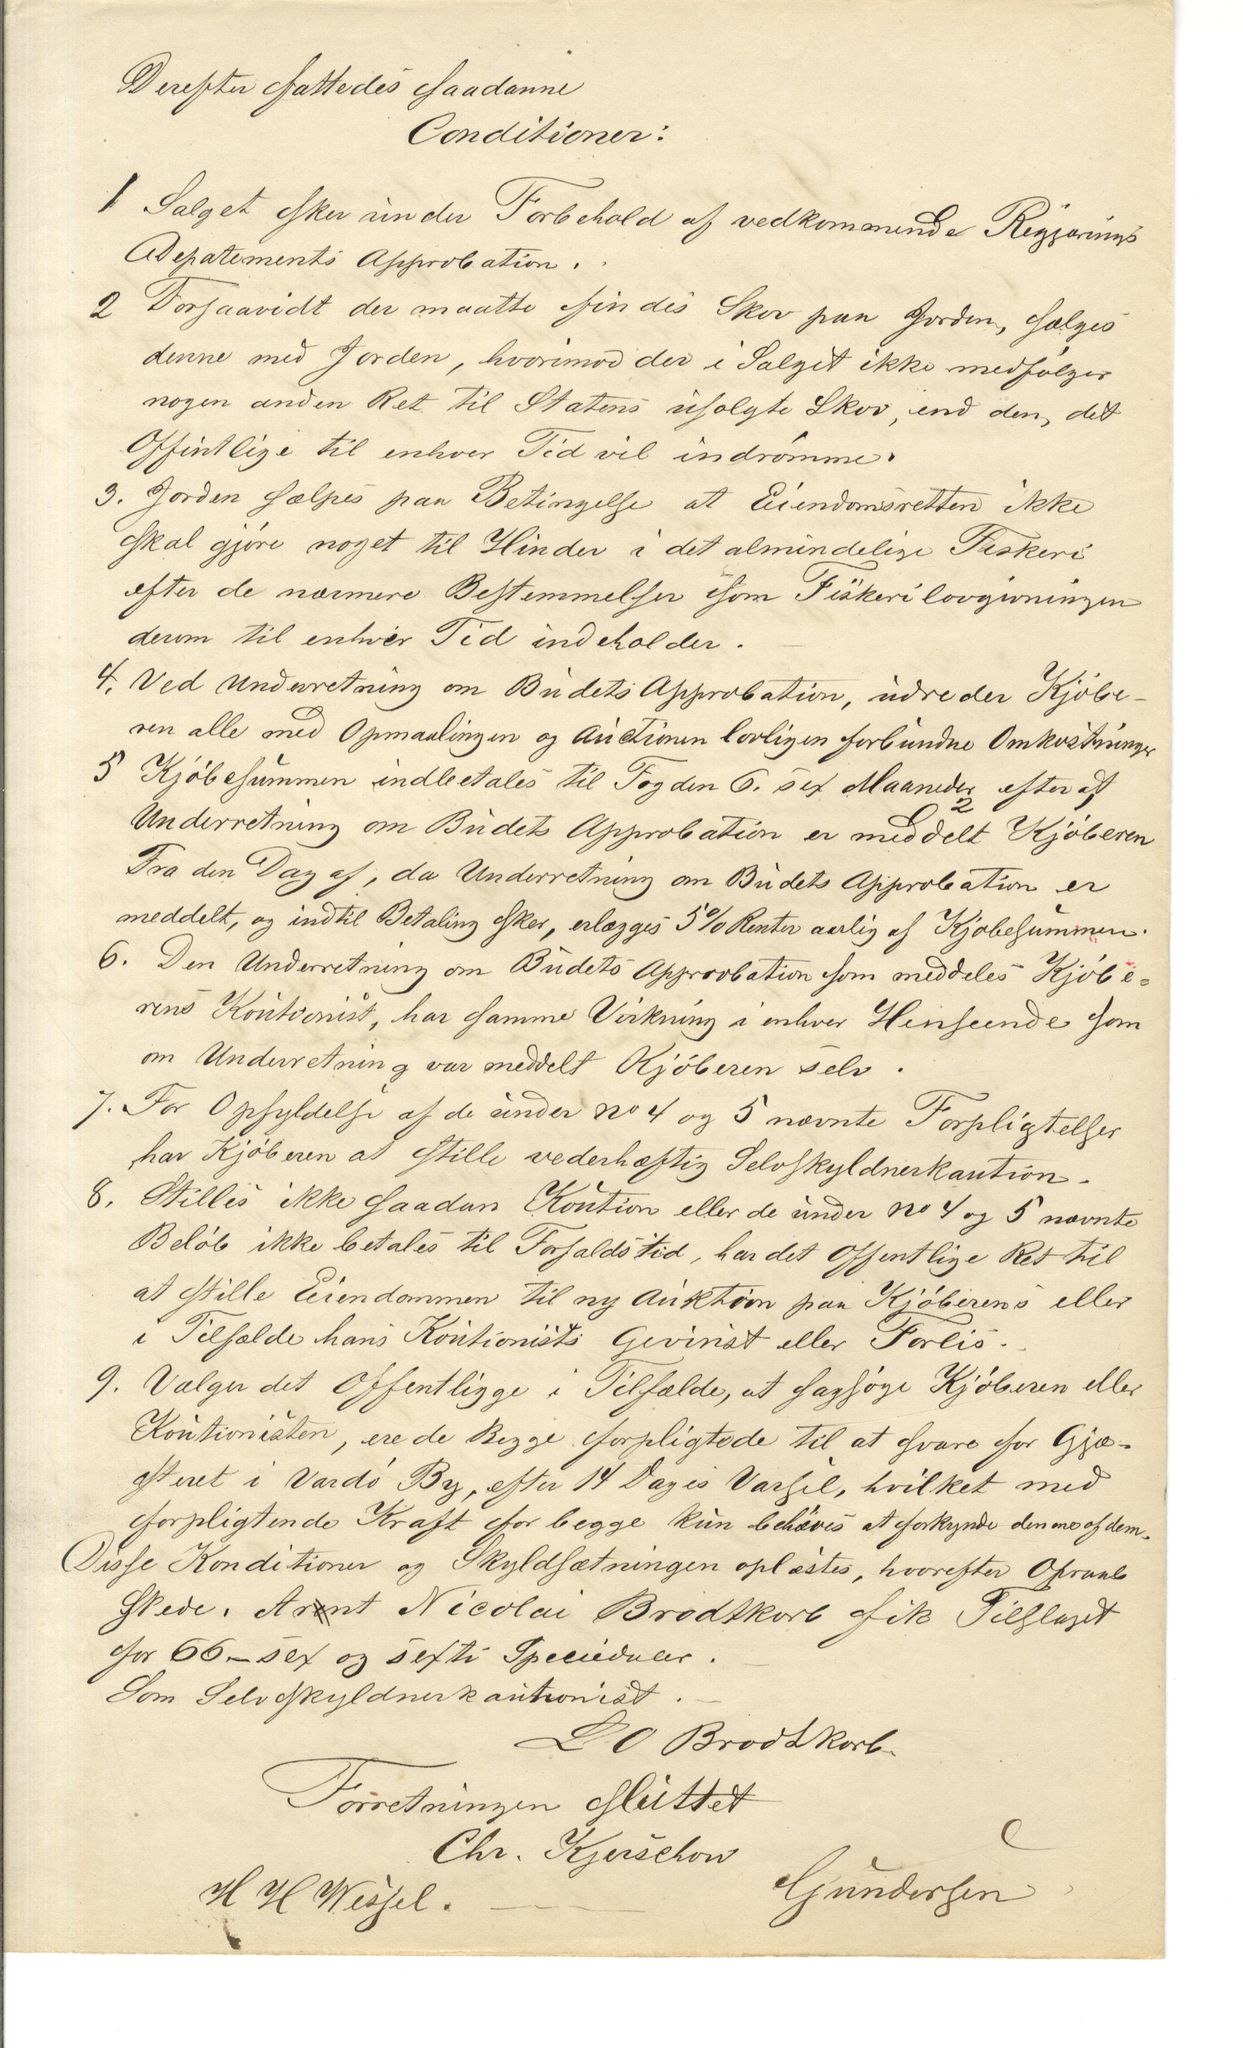 Derefter fattedes saadanne
Conditioner:
1 Salget sker under Forbehold af vedkommende Regjerings
Depatements Approbation.
2 Forsaavidt der maatte findes Skov paa Jorden, sælges
denne med Jorden, hvorimod der i Salget ikke medfølger
nogen anden Ret til Statens usolgte Skov, end den, det
Offentlige til enhver Tid vil indrømme.
3. Jorden sælges paa Betingelse at Eiendomsretten ikke
skal gjøre noget til Hinder i det almindelige Fiskeri
efter de nærmere Bestemmelser som Fiskerilovgivningen
derom til enhver Tid indeholder.
4. Ved Underretning om Budets Approbation, udreder Kjøbe-
ren alle med Opmaalingen og Auctionen lovligen forbundne Omkostninger
5 Kjøbesummen indbetales til Fogden 6. sex Maaneder efter at
Underretning om Budets Approbation er meddelt Kjøberen
Fra den Dag af, da Underretning om Budets Approbation er
meddelt, og indtil Betaling sker, erlægges 5% Renter aarlig af Kjøbesummen.
6. Den Underretning om Budets Approbation som meddeles Kjøbe-
rens Kautionist, har samme Virkning i enhver Henseende som
om Underretning var meddelt Kjøberen selv.
7. For Opfyldelse af de under No 4 og 5 nævnte Forpligtelser
har Kjøberen at stille vederhæftig Selvskyldnerkaution.
8. Stilles ikke saadan Kaution eller de under No 4 og 5 nævnte
Beløb ikke betales til Forfaldstid, har det Offentlige Ret til
at stille Eiendommen til ny Auktion paa Kjøberens eller
i Tilfælde hans Kautionists Gevinst eller Forlis.
9. Vælger det Offentligge i Tilfælde, at sagsøge Kjøberen eller
Kautionisten, ere de Begge forpligtede til at svare for Gjæ-
steret i Vardø By, efter 14 Dages Varsel, hvilket med
forpligtende Kraft for begge kun behøves at forkynde den ene af dem.
Disse Konditioner og Skyldsætningen oplæstes, hvorefter Opraab
skede. Arent Nicolai Brodtkorb fik Tilslaget
for 66 – sex og sexti Speciedaler.
Som Selvskyldnerkautionist.
L O Brodtkorb.
Forretningen sluttet
Chr. Kjerschow
H H Wessel. Gundersen